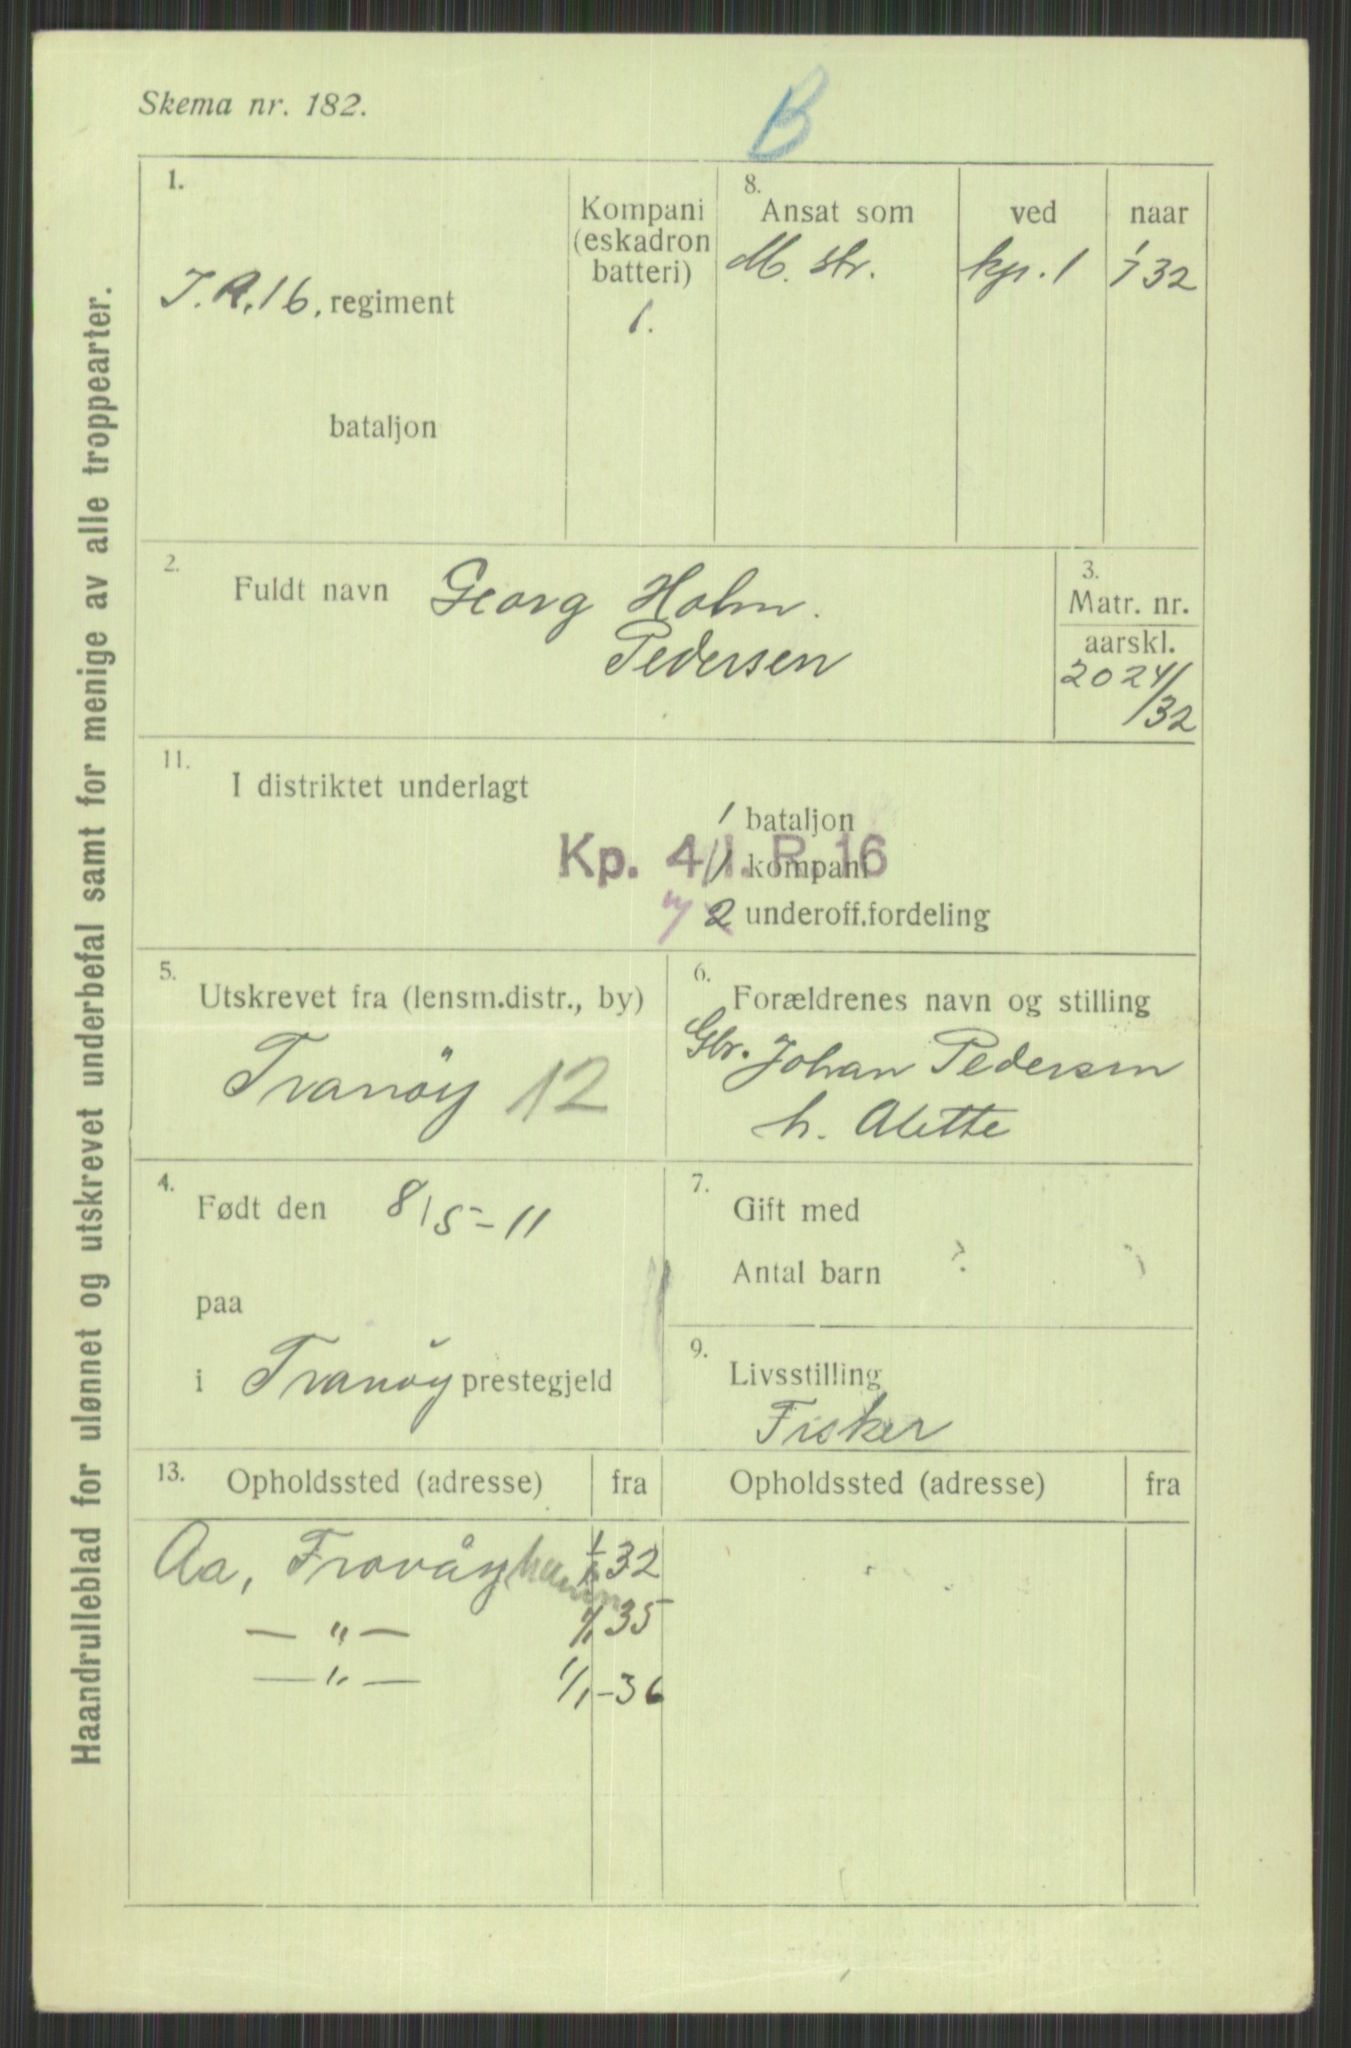 Skema nr. 182.
B
Haandrulleblad for ulønnet og utskrevet underbefal samt for menige av alle troppearter.
1.
J.R.16. regiment
bataljon
Kompani
(eskadron
batteri)
1.
8.
Ansat som
ved
naar
M. str.
kp. 1
1/7 32
2.
Fuldt navn Georg Holm.
Pedersen
3.
Matr. nr.
aarskl.
2024/
/32
11.
I distriktet underlagt
1 bataljon
Kp. 4 I. R. 16
1 kompani
2 underoff.fordeling
5.
Utskrevet fra (lensm.distr., by)
Tranöy 12
6.
Forældrenes navn og stilling
Gbr. Johan Pedersen
h. Alette
4.
Født den 8/5-11
paa
i Tranöy prestegjeld
7.
Gift med
Antal barn
9.
Livsstilling
Fisker
13.
Opholdssted (adresse)
fra
Opholdssted (adresse)
fra
Aa, Frovåg 32
— " — 1/1 35
— " — 1/1-36